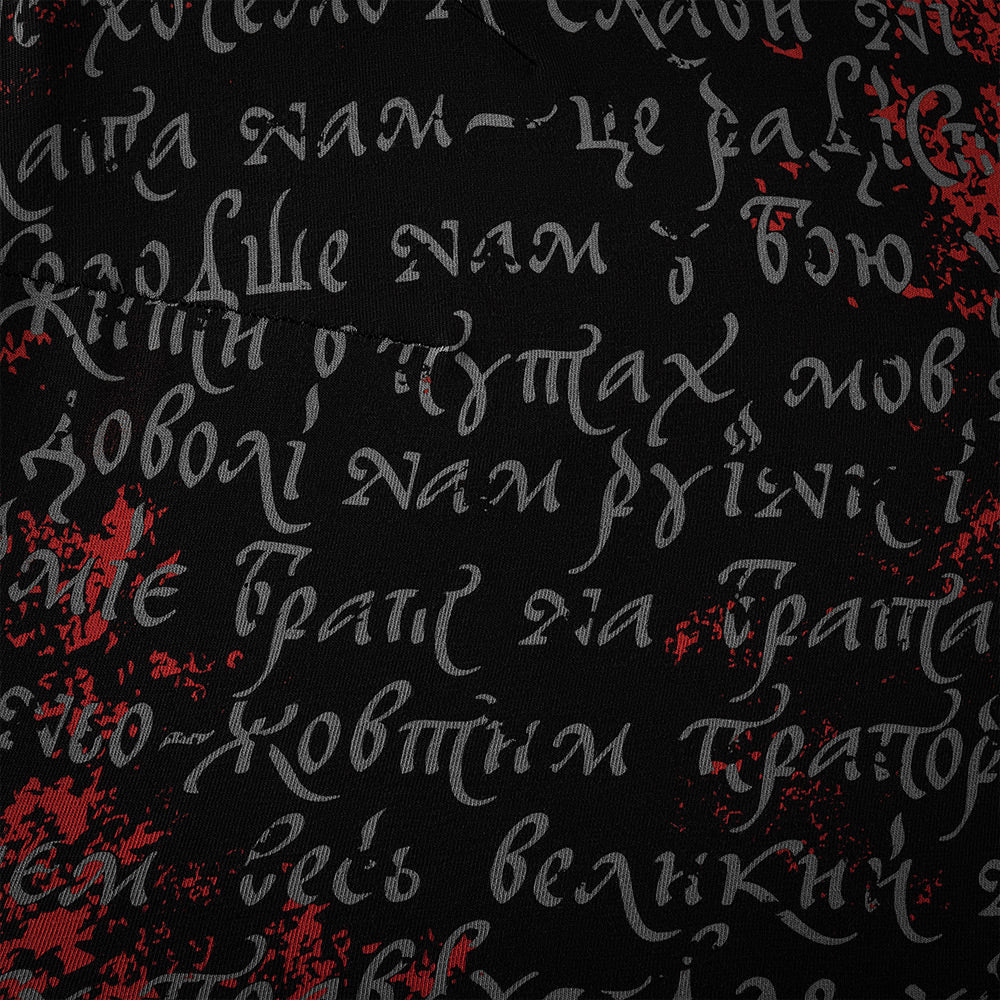 хочемо ні слави ні
лата нам — це радіс
олодше нам у бою
жити в путах мов
доволі нам руїни і
міє брат на брата
ньо-жовтим прапор
єм весь великий